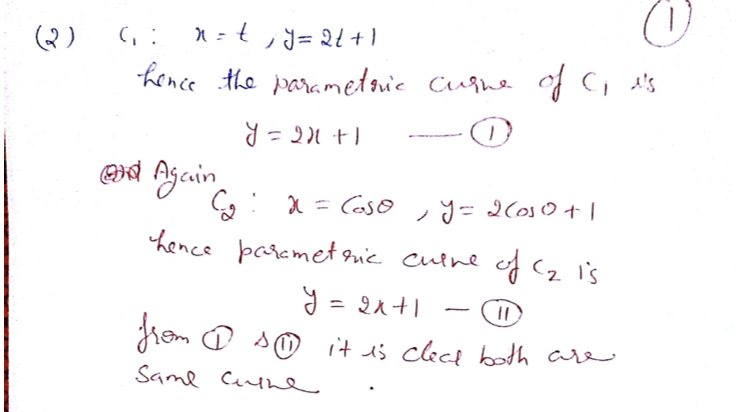 ①
(2) C₁ : x = t , y = 2t + 1
hence the parametric curve of C₁ is
y = 2x + 1 —— ①
Again
C₂ : x = Cosθ , y = 2Cosθ + 1
hence parametric curve of C₂ is
y = 2x + 1 — ⑪
from ① & ⑪ it is clear both are
same curve .